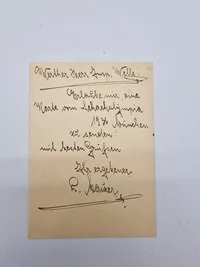 Werther Herr Insp. Wille
Erlaube mir eine
Karte vom Schacholympia
1936 München
zu senden!
mit besten Grüßen
Ihr ergebener